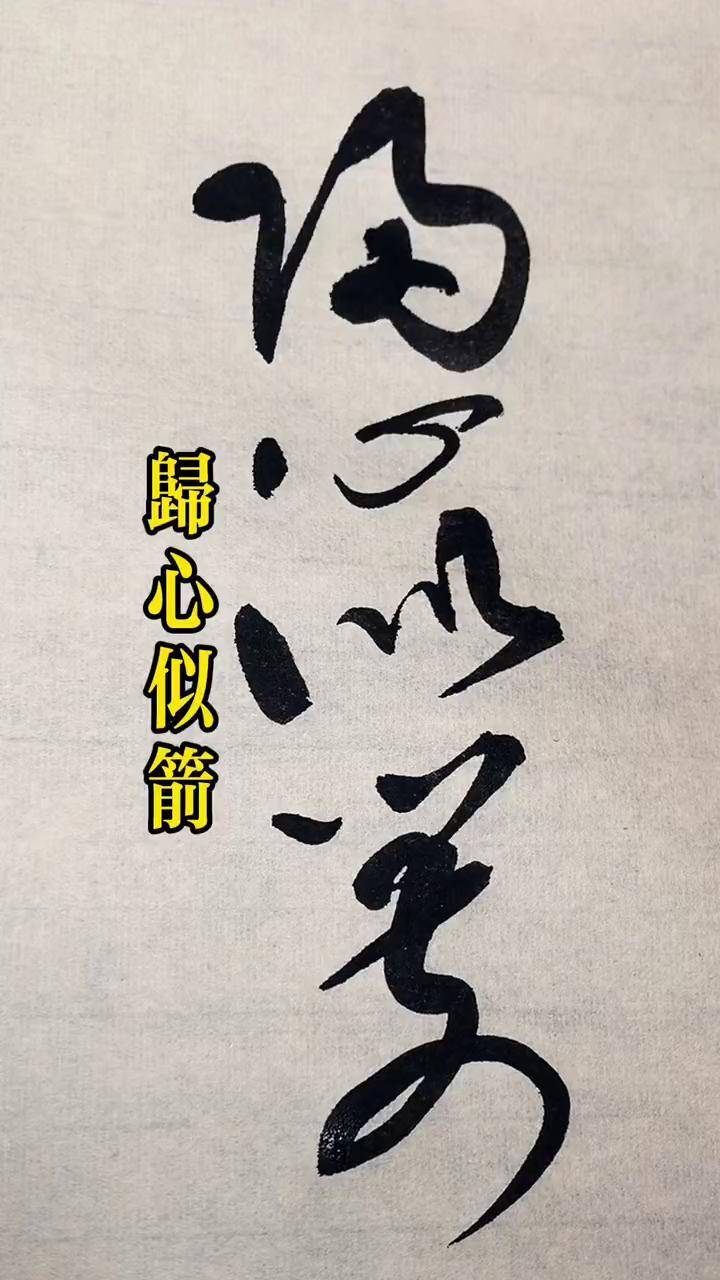 歸心似箭
歸心似箭